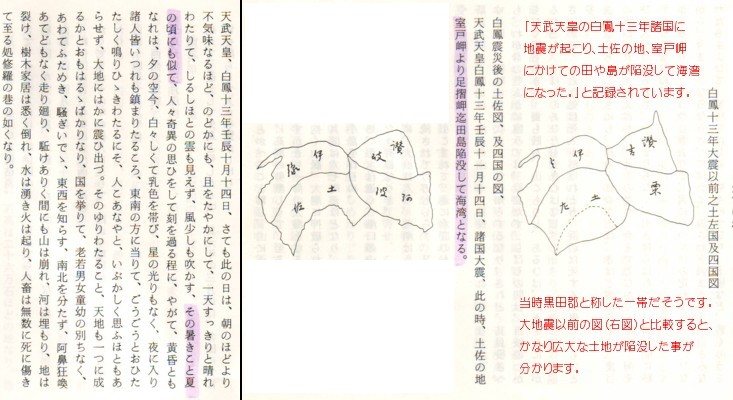 白鳳十三年大震以前之土左国及四国図
「天武天皇の白鳳十三年諸国に
地震が起こり、土佐の地、室戸岬
にかけての田や島が陥没して海湾
になった。」と記録されています。
讃吉
伊よ
粟
土左
当時黒田郡と称した一帯だそうです。
大地震以前の図(右図)と比較すると、
かなり広大な土地が陥没した事が
分かります。
白鳳震災後の土佐図、及四国の図、
天武天皇白鳳十三年壬辰十一月十四日、諸国大震、此の時、土佐の地
室戸岬より足摺岬迄田島陥没して海湾となる。
讃岐
伊豫
阿波
土佐
天武天皇、白鳳十三年壬辰十月十四日、さても此の日は、朝のほどより
不気味なるほど、のどかにも、且をたやかにして、一天すっきりと晴れ
わたりて、しるしほとの雲も見えず、風少しも吹かす、その暑きこと夏
の頃にも似て、人々奇異の思ひをして刻を過る程に、やがて、黄昏とも
なれは、夕の空今、白々しくて乳色を帯び、星の光りもなく、夜に入り
諸人皆いつれも鎮まりたるころ、東南の方に当りて、ごうごうとおひた
たしく鳴りひゞきわたるにそ、人とあなやと、いぶかしく思ふほともあ
らせず、大地にはかに震ひ出づ。そのゆりわたること、天地も一つに成
るかとおもはるゝばかりなり、国を挙りて、老若男女童幼の別ちなく、
あわてふためき、騒ぎいでゝ、東西を知らす、南北を分たず、阿鼻狂喚
あてどもなく走り廻り、駈けありく間にも山は崩れ、河は埋もり、地は
裂け、樹木家居は悉く倒れ、水は湧き火は起り、人畜は無数に死に傷き
て至る処修羅の巷の如くなり。